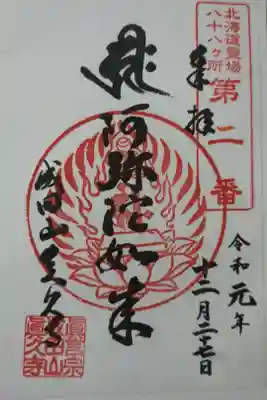 北海道霊場
八十八ヶ所
第二番
奉拝
令和元年
十二月二七日
阿弥陀如来
成田山真久寺
眞言宗
成田山
眞久寺